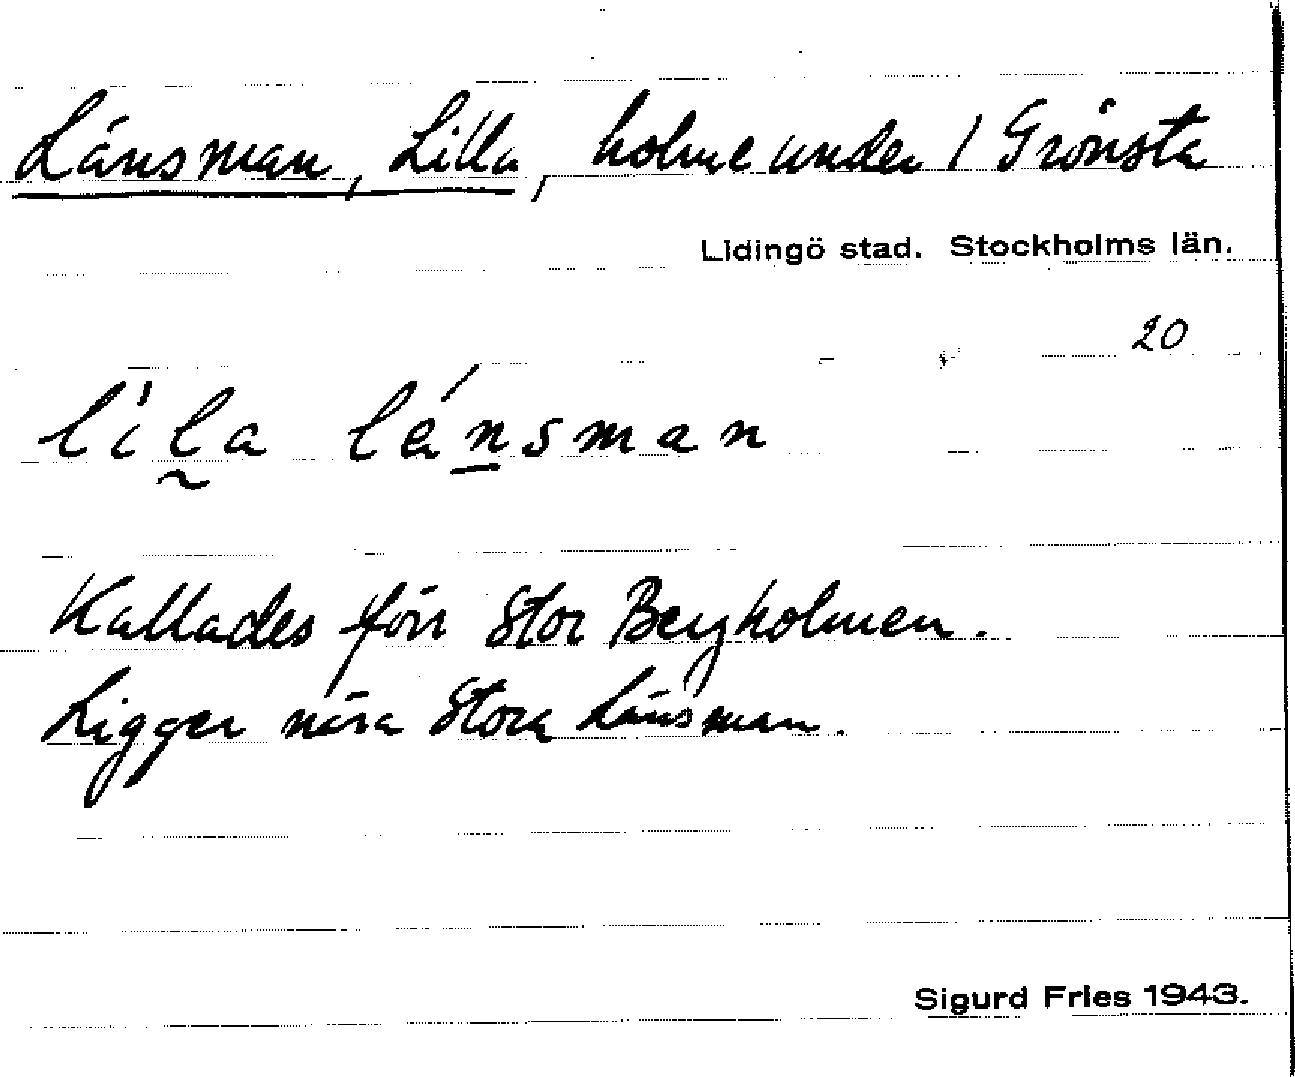 Länsman, Lilla, holme under 1 Grönsta
Lidingö stad. Stockholms län.
20
lìla lánsman
Kallades förr Stor Bergholmen.
Ligger nära Stora Länsman.
Sigurd Fries 1943.